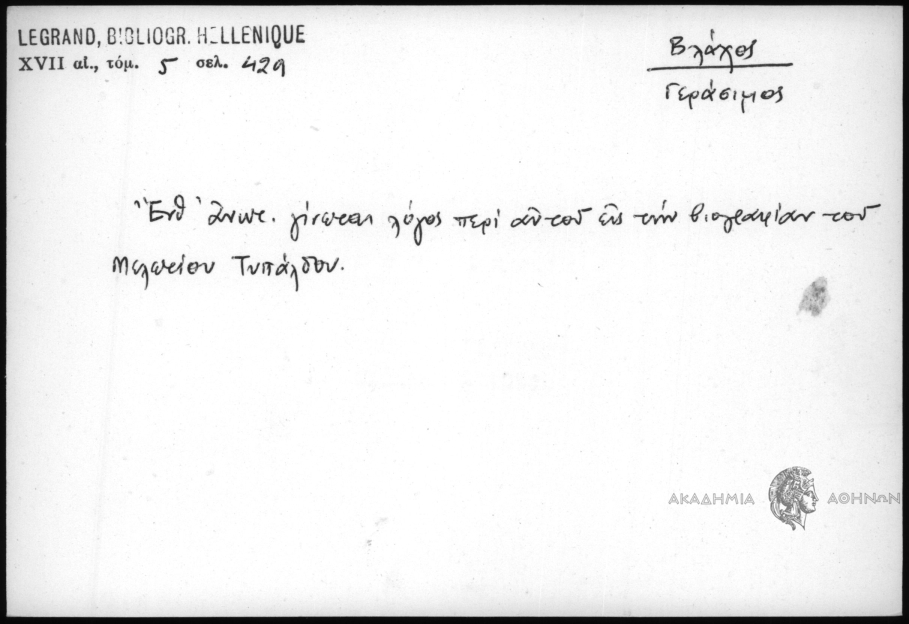 LEGRAND, BIBLIOGR. HELLENIQUE
XVII αἰ., τόμ. 5 σελ. 429
Βλάχος
Γεράσιμος
Ἔνθ' ἄνωτ. γίνεται λόγος περί αὐτοῦ εἰς τήν βιογραφίαν τοῦ
Μελετίου Τυπάλδου.
ΑΚΑΔΗΜΙΑ ΑΘΗΝΩΝ